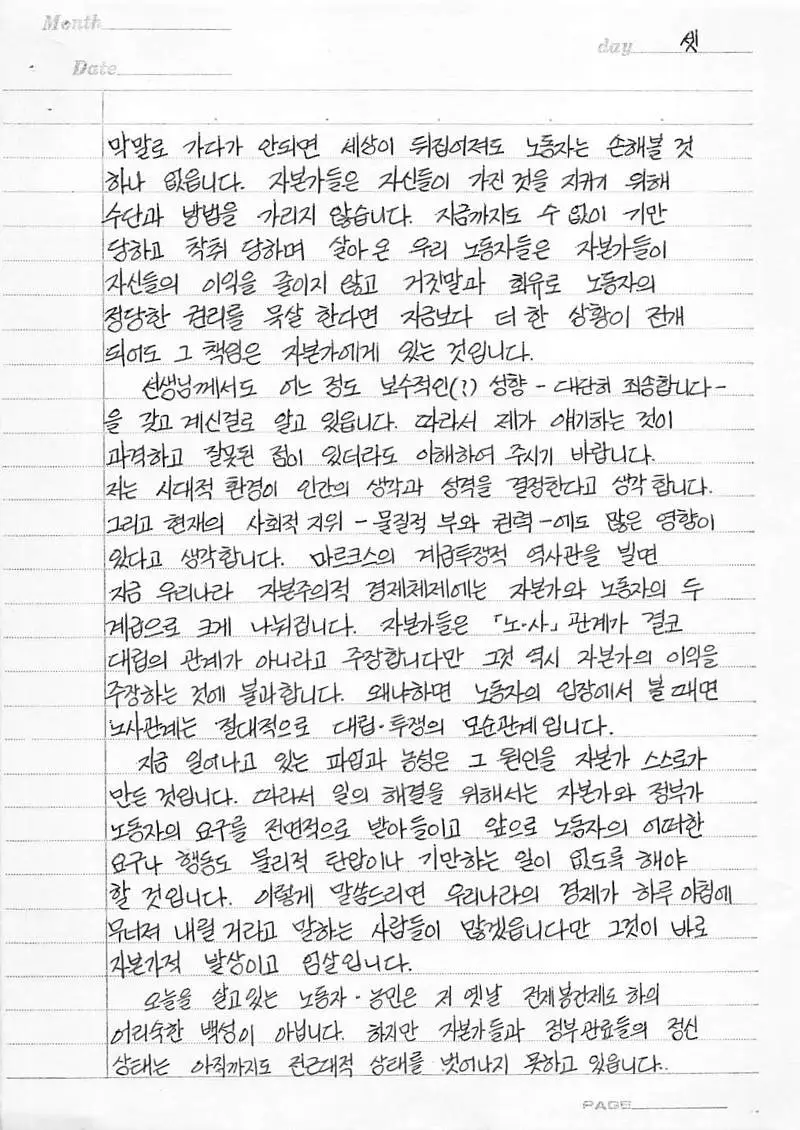 Month
day 셋
Date
막말로 가다가 안되면 세상이 뒤집어져도 노동자는 손해볼 것
하나 없읍니다. 자본가들은 자신들이 가진 것을 지키기 위해
수단과 방법을 가리지 않습니다. 지금까지도 수 없이 기만
당하고 착취 당하며 살아 온 우리 노동자들은 자본가들이
자신들의 이익을 줄이지 않고 거짓말과 회유로 노동자의
정당한 권리를 묵살 한다면 지금보다 더 한 상황이 전개
되어도 그 책임은 자본가에게 있는 것입니다.
선생님께서도 어느 정도 보수적인(?) 성향 - 대단히 죄송합니다 -
을 갖고 계신걸로 알고 있읍니다. 따라서 제가 얘기하는 것이
과격하고 잘못된 점이 있더라도 이해하여 주시기 바랍니다.
저는 시대적 환경이 인간의 생각과 성격을 결정한다고 생각합니다.
그리고 현재의 사회적 지위 - 물질적 부와 권력 - 에도 많은 영향이
있다고 생각합니다. 마르크스의 계급투쟁적 역사관을 빌면
지금 우리나라 자본주의적 경제체제에는 자본가와 노동자의 두
계급으로 크게 나눠집니다. 자본가들은 「노·사」 관계가 결코
대립의 관계가 아니라고 주장합니다만 그것 역시 자본가의 이익을
주장하는 것에 불과합니다. 왜냐하면 노동자의 입장에서 볼 때면
노사관계는 절대적으로 대립·투쟁의 모순관계입니다.
지금 일어나고 있는 파업과 농성은 그 원인을 자본가 스스로가
만든 것입니다. 따라서 일의 해결을 위해서는 자본가와 정부가
노동자의 요구를 전면적으로 받아들이고 앞으로 노동자의 어떠한
요구나 행동도 물리적 탄압이나 기만하는 일이 없도록 해야
할 것입니다. 이렇게 말씀드리면 우리나라의 경제가 하루 아침에
무너져 내릴 거라고 말하는 사람들이 많겠읍니다만 그것이 바로
자본가적 발상이고 엄살입니다.
오늘을 살고있는 노동자·농민은 저 옛날 전제봉건제도 하의
어리숙한 백성이 아닙니다. 하지만 자본가들과 정부관료들의 정신
상태는 아직까지도 전근대적 상태를 벗어나지 못하고 있읍니다.
PAGE